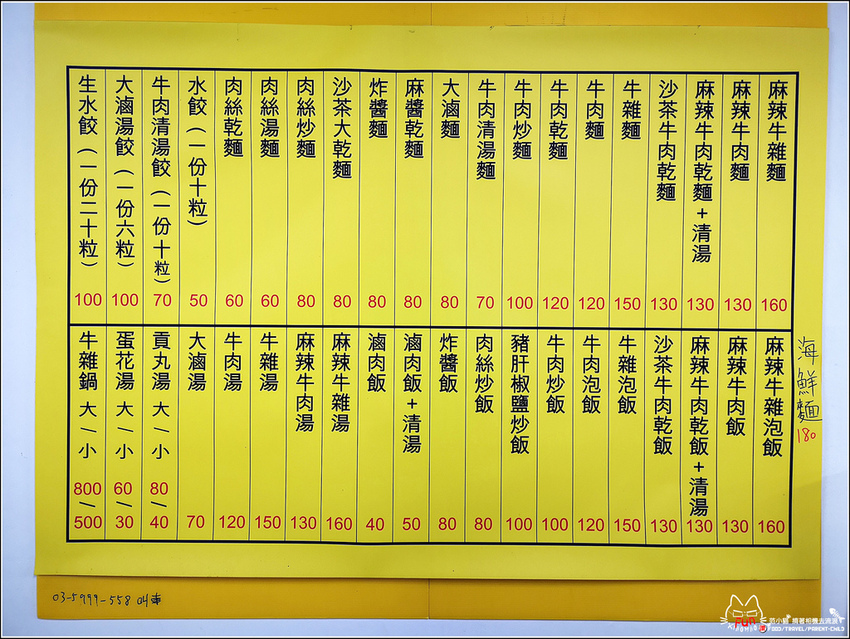 麻辣牛雜麵 160
麻辣牛肉麵 130
麻辣牛肉乾麵+清湯 130
沙茶牛肉乾麵 130
牛雜麵 150
牛肉麵 120
牛肉乾麵 120
牛肉炒麵 100
牛肉清湯麵 70
大滷麵 80
麻醬乾麵 80
炸醬麵 80
沙茶大乾麵 80
肉絲炒麵 80
肉絲湯麵 60
肉絲乾麵 60
水餃(一份十粒) 50
牛肉清湯餃(一份十粒) 70
大滷湯餃(一份六粒) 100
生水餃(一份二十粒) 100
海鮮麵 180
麻辣牛雜泡飯 160
麻辣牛肉飯 130
麻辣牛肉乾飯+清湯 130
沙茶牛肉乾飯 130
牛雜泡飯 150
牛肉泡飯 120
牛肉炒飯 100
豬肝椒鹽炒飯 100
肉絲炒飯 80
炸醬飯 80
滷肉飯+清湯 50
滷肉飯 40
麻辣牛雜湯 160
麻辣牛肉湯 130
牛雜湯 150
牛肉湯 120
大滷湯 70
貢丸湯 大/小 80/40
蛋花湯 大/小 60/30
牛雜鍋 大/小 800/500
03-5999-558 叫車
FUN